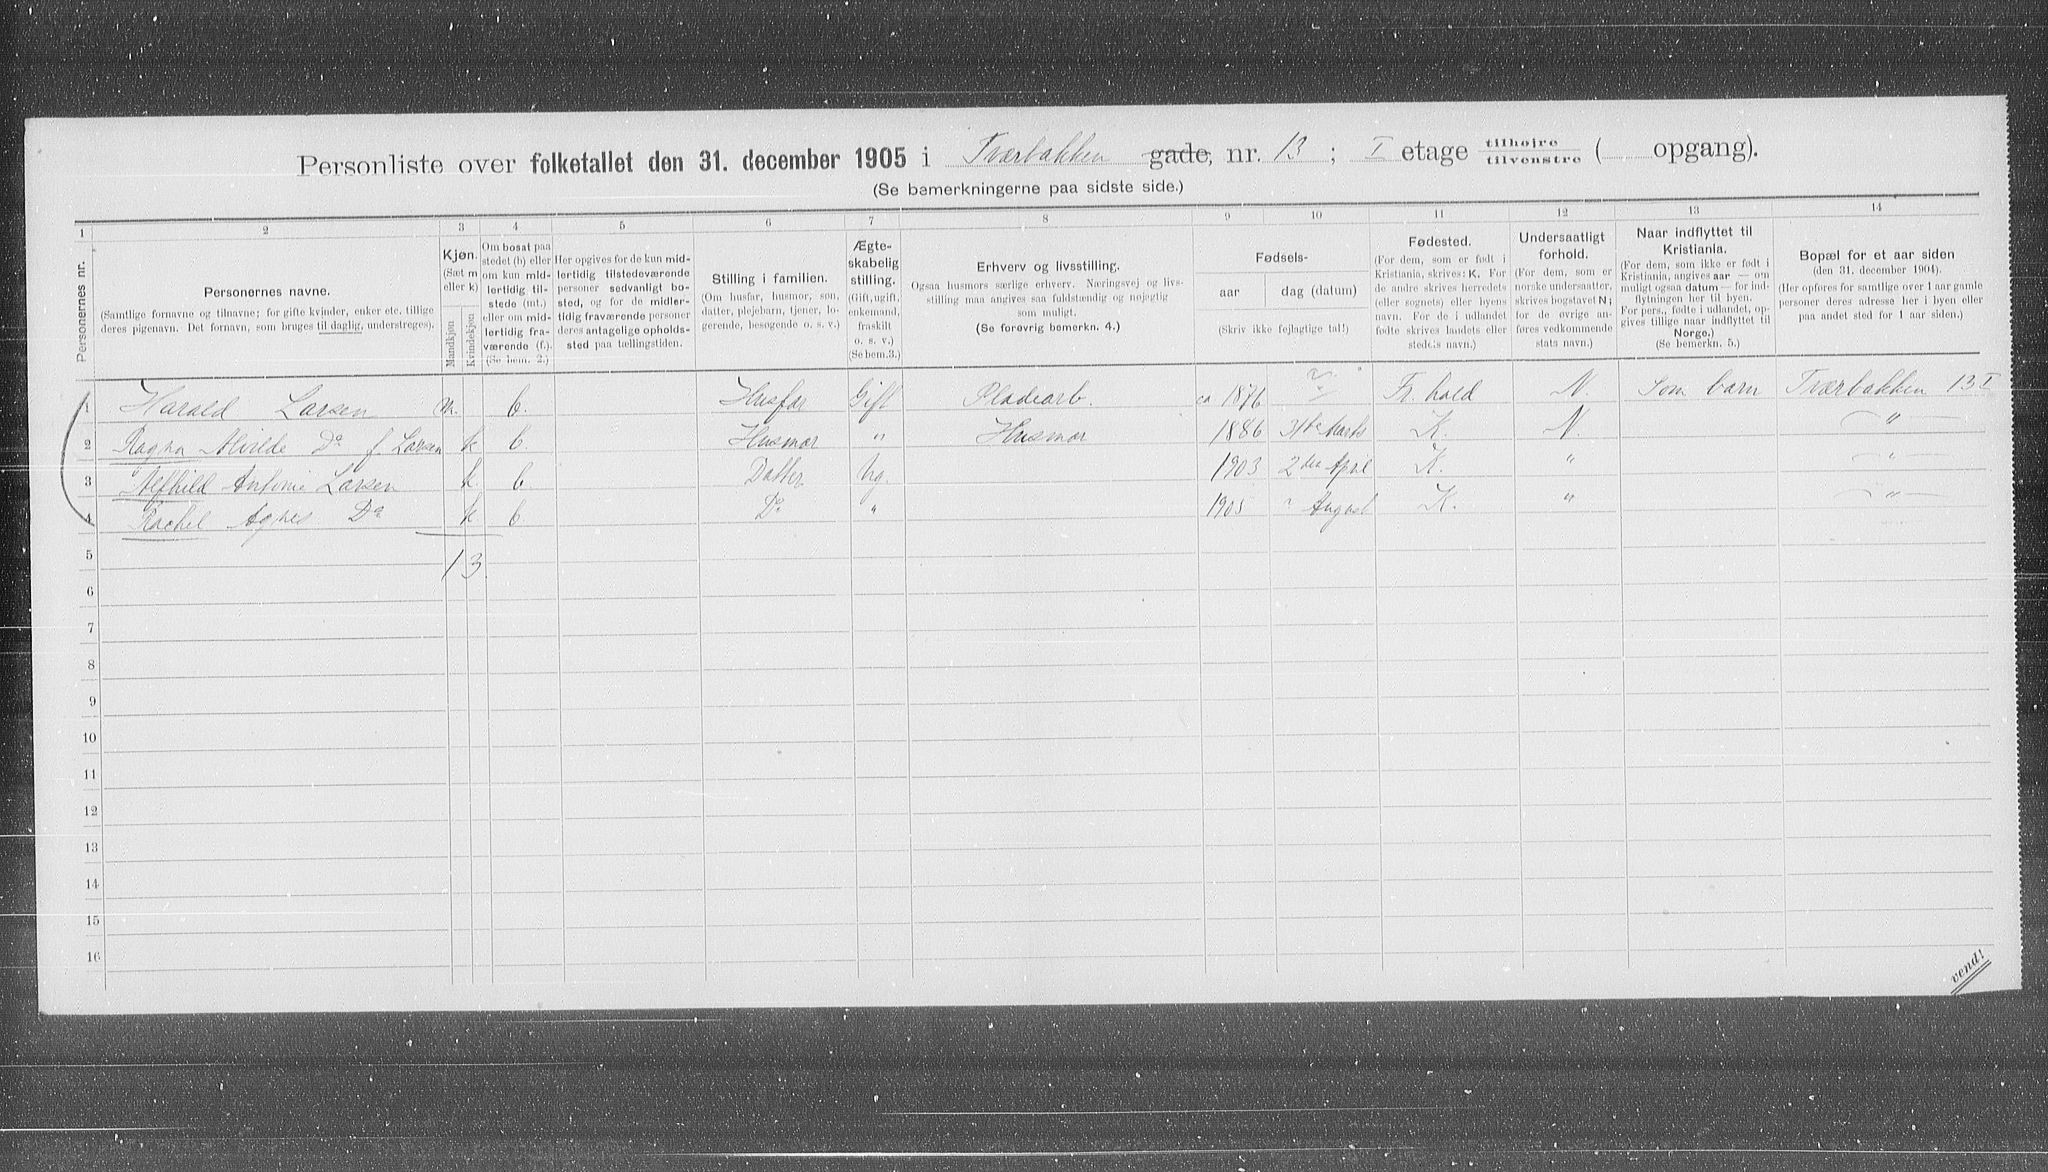 Personliste over folketallet den 31. december 1905 i Tværbakken gade, nr. 13 ; I etage tilhøjre tilvenstre ( opgang).
(Se bemerkningerne paa sidste side.)
1 2 3 4 5 6 7 8 9 10 11 12 13 14
Personernes nr.
Personernes navne.
(Samtlige fornavne og tilnavne; for gifte kvinder, enker etc. tillige
deres pigenavn. Det fornavn, som bruges til daglig, understreges).
Kjøn.
(Sæt m
eller k)
Mandkjøn
Kvindekjøn
Om bosat paa
stedet (b) eller
om kun mid-
lertidig til-
stede (mt.)
eller om mid-
lertidig fra-
værende (f.).
(Se bem. 2.)
Her opgives for de kun mid-
lertidig tilstedeværende
personer sedvanlig bo-
sted, og for de midler-
tidig fraværende personer
deres antagelige opholds-
sted paa tællingstiden.
Stilling i familien.
(Om husfar, husmor, søn,
datter, plejebarn, tjener, lo-
gerende, besøgende o. s. v.)
Ægte-
skabelig
stilling.
(Gift, ugift,
enkemand,
fraskilt
o. s. v.)
(Se bem.3.)
Erhverv og livsstilling.
Ogsaa husmors særlige erhverv. Næringsvej og livs-
stilling maa angives saa fuldstændig og nøjegtig
som muligt.
(Se forøvrig bemerkn. 4.)
Fødsels-
aar
dag (datum)
(Skriv ikke fejlagtige tal!)
Fødested.
(For dem, som er født i
Kristiania, skrives: K. For
de andre skrives herredets
(eller sognets) eller byens
navn. For de i udlandet
fødte skrives landets eller
stedets navn.)
Undersaatligt
forhold.
(For dem, som er
norske undersaatter,
skrives bogstavet N;
for de øvrige an-
føres vedkommende
stats navn.)
Naar indflyttet til
Kristiania.
(For dem, som ikke er født i
Kristiania, angives aar — om
muligt ogsaa datum — for ind-
flytningen her til byen.
For pers., fødte i udlandet, op-
gives tillige naar indflyttet til
Norge.)
(Se bemerkn. 5.)
Bopæl for et aar siden
(den 31. december 1904).
(Her opføres for samtlige over 1 aar gamle
personer deres adresse her i byen eller
paa andet sted for 1 aar siden.)
1 Harald Larsen m. b. Husfar Gift Pladearb. ca 1876 ? Fr. hald N. Som barn Tværbakken 13 I
2 Ragna Alvilde Do f. Larsen k b. Husmor " Husmor 1886 31te Marts K. N. — " —
3 Alfhild Antonie Larsen k. b. Datter Ug. 1903 2den April K. " — " —
4 Rachel Agnes Do k b Do " 1905 ? August K. " — " —
5 1 3.
6
7
8
9
10
11
12
13
14
15
16
vend!